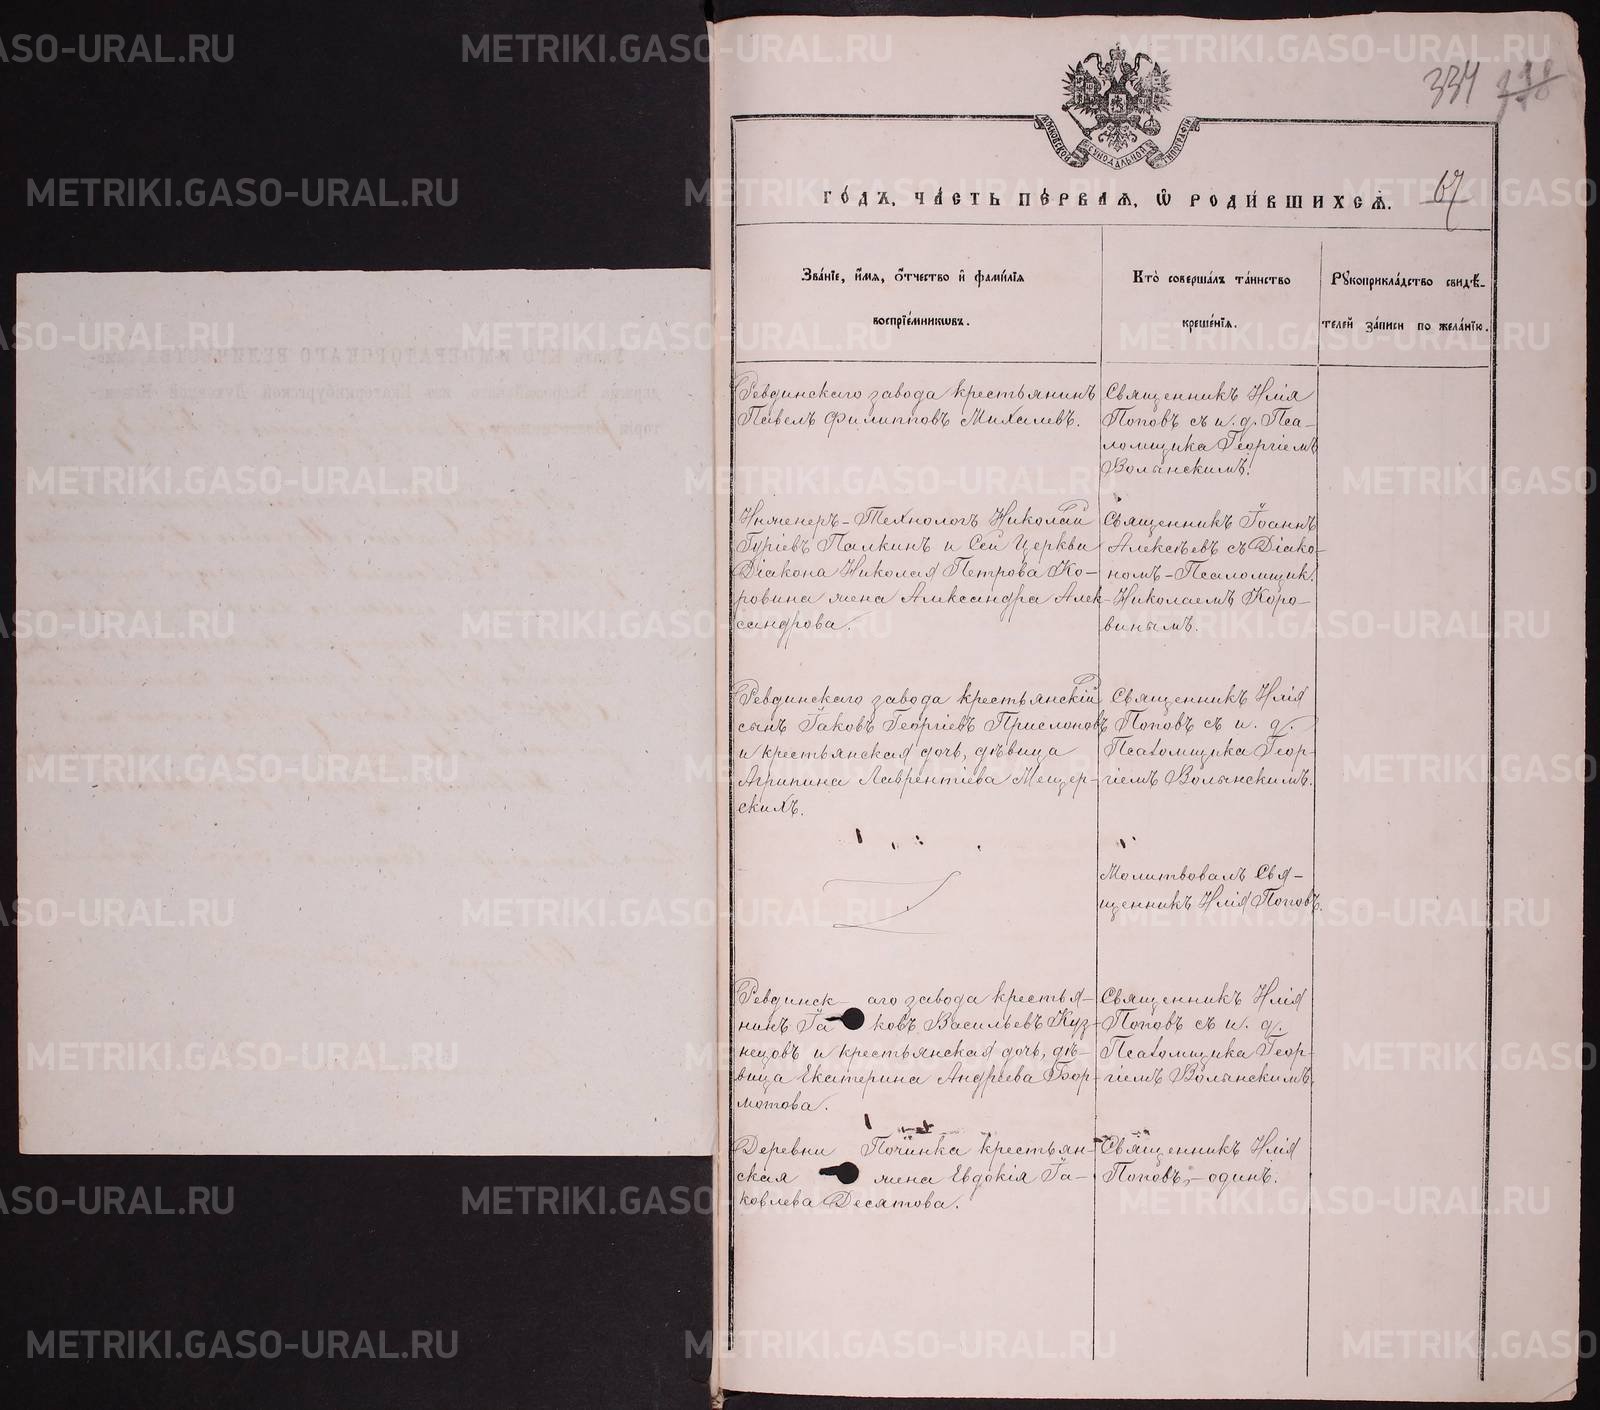 334 338
МОСКОВСКОЙ СѴНОДАЛЬНОЙ ТИПОГРАФІИ
ГОДЪ, ЧАСТЬ ПЕРВАѦ, Ѡ РОДИВШИХСѦ. 67
Званїе, имѧ, отчество и фамилїѧ
воспрїемникѡвъ.
Кто совершалъ таинство
крещенїѧ.
Рукоприкладство свидѣ-
телей записи по желанїю.
Ревдинскаго завода крестьянинъ
Павелъ Филипповъ Михалевъ.
Священникъ Илія
Поповъ съ и. д. Пса-
ломщика Георгіемъ
Волынскимъ.
Инженеръ-Технологъ Николай
Гуріевъ Палкинъ и Сей Церкви
Діакона Николая Петрова Ко-
ровина жена Александра Алек-
сандрова.
Священникъ Іоаннъ
Алексѣевъ съ Діако-
номъ-Псаломщик.
Николаемъ Коро-
винымъ.
Ревдинскаго завода крестьянскій
сынъ Іаковъ Георгіевъ Прислоновъ
и крестьянская дочь, дѣвица
Агрипина Лаврентіева Мещер-
скихъ.
Священникъ Илія
Поповъ съ и. д.
Псаломщика Геор-
гіемъ Волынскимъ.
Молитвовалъ Свя-
щенникъ Илія Поповъ.
Ревдинск- аго завода крестья-
нинъ Іа ковъ Васильевъ Куз-
нецовъ и крестьянская дочь, дѣ-
вица Екатерина Андреева Бор-
мотова.
Священникъ Илія
Поповъ съ и. д.
Псаломщика Геор-
гіемъ Волынскимъ.
Деревни Починка крестьян-
ская жена Евдокія Іа-
ковлева Десятова.
Священникъ Илія
Поповъ,-одинъ.
METRIKI.GASO-URAL.RU